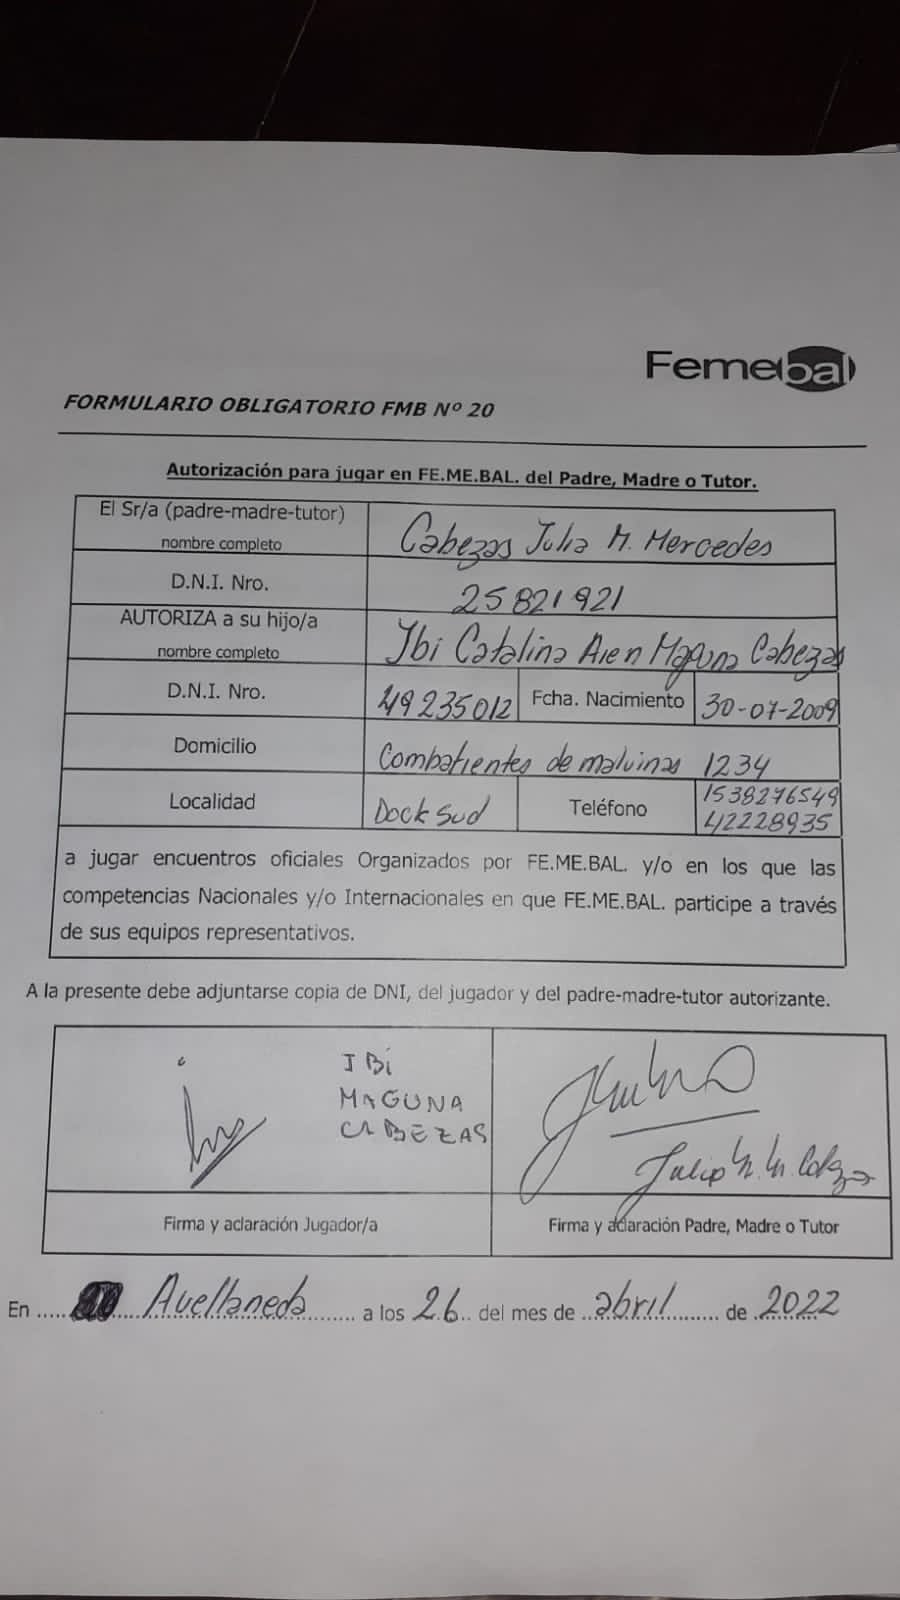 Femebal
FORMULARIO OBLIGATORIO FMB Nº 20
Autorización para jugar en FE.ME.BAL. del Padre, Madre o Tutor.
El Sr/a (padre-madre-tutor)
nombre completo
Cabezas Julia M. Mercedes
D.N.I. Nro.
25821921
AUTORIZA a su hijo/a
nombre completo
Ibi Catalina Aien Maguna Cabezas
D.N.I. Nro.
49235012
Fcha. Nacimiento
30-07-2009
Domicilio
Combatientes de malvinas 1234
Localidad
Dock Sud
Teléfono
1538276549
42228935
a jugar encuentros oficiales Organizados por FE.ME.BAL. y/o en los que las
competencias Nacionales y/o Internacionales en que FE.ME.BAL. participe a través
de sus equipos representativos.
A la presente debe adjuntarse copia de DNI, del jugador y del padre-madre-tutor autorizante.
IBi
MAGUNA
CABEZAS
Firma y aclaración Jugador/a
Firma y aclaración Padre, Madre o Tutor
En ..... Avellaneda ............ a los 26.. del mes de ..abril............ de .2022